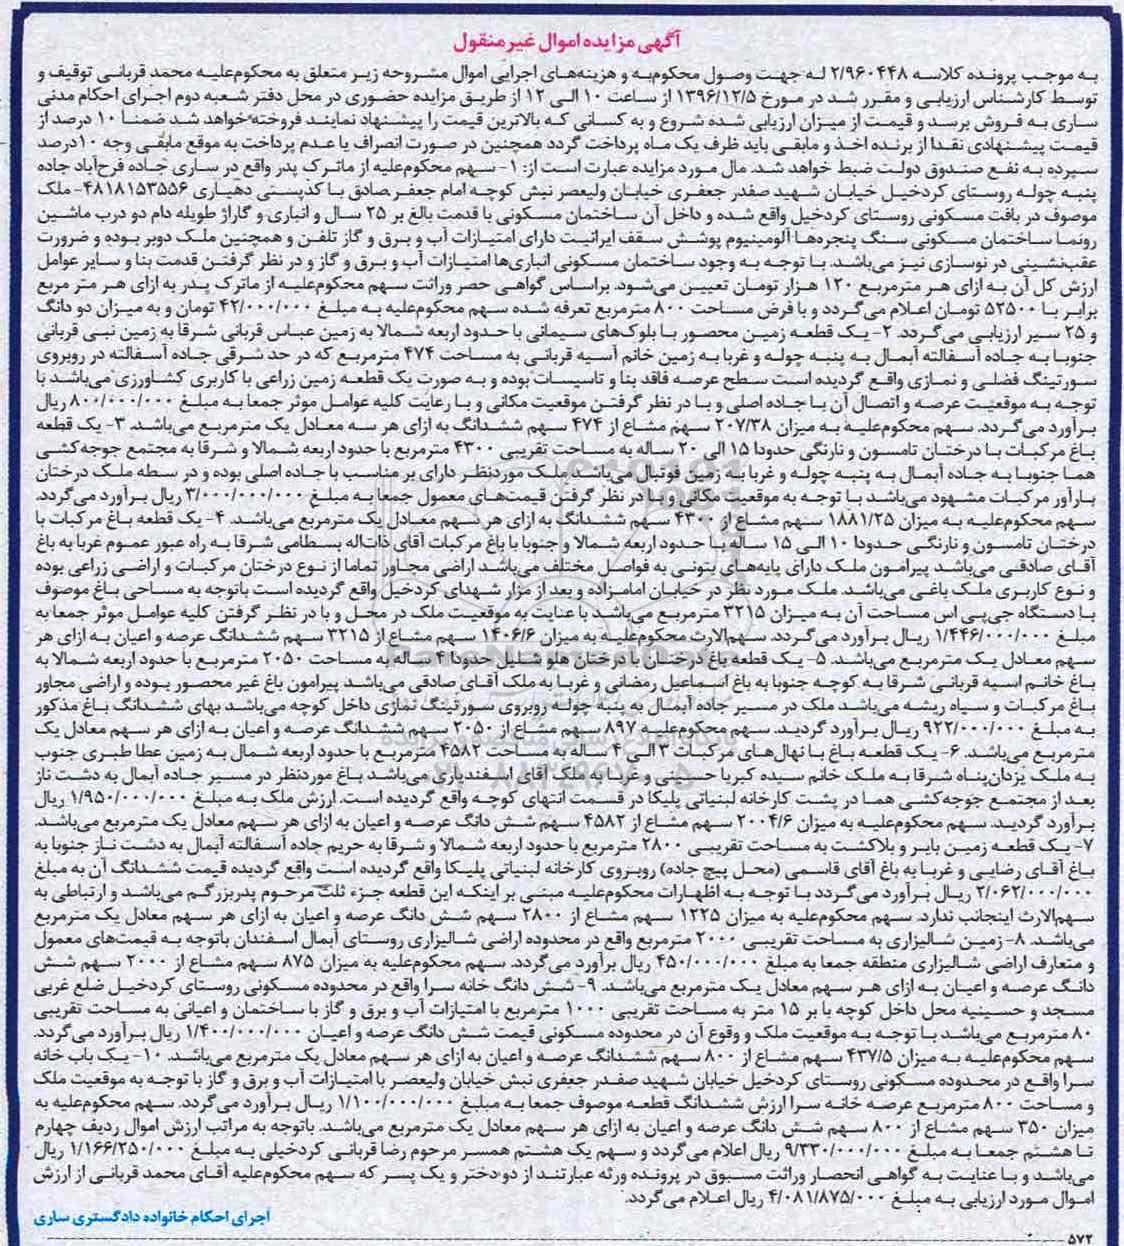 آگهی مزایده اموال غیرمنقول
به موجب پرونده کلاسه ۲/۹۶۰۴۴۸ له جهت وصول محکوم‌به و هزینه‌های اجرایی اموال مشروحه زیر متعلق به محکوم‌علیه محمد قربانی توقیف و
توسط کارشناس ارزیابی و مقرر شد در مورخ ۱۳۹۶/۱۲/۵ از ساعت ۱۰ الی ۱۲ از طریق مزایده حضوری در محل دفتر شعبه دوم اجرای احکام مدنی
ساری به فروش برسد و قیمت از میزان ارزیابی شده شروع و به کسانی که بالاترین قیمت را پیشنهاد نمایند فروخته خواهد شد ضمنا ۱۰ درصد از
قیمت پیشنهادی نقدا از برنده اخذ و مابقی باید ظرف یک ماه پرداخت گردد همچنین در صورت انصراف یا عدم پرداخت به موقع مابقی وجه ۱۰درصد
سپرده به نفع صندوق دولت ضبط خواهد شد. مال مورد مزایده عبارت است از: ۱- سهم محکوم‌علیه از ماترک پدر واقع در ساری جاده فرح‌آباد جاده
پنبه چوله روستای کردخیل خیابان شهید صفدر جعفری خیابان ولیعصر نبش کوچه امام جعفر صادق با کدپستی دهیاری ۴۸۱۸۱۵۳۵۵۶- ملک
موصوف در بافت مسکونی روستای کردخیل واقع شده و داخل آن ساختمان مسکونی با قدمت بالغ بر ۲۵ سال و انباری و گاراژ طویله دام دو درب ماشین
رونما ساختمان مسکونی سنگ پنجره‌ها آلومینیوم پوشش سقف ایرانیت دارای امتیازات آب و برق و گاز تلفن و همچنین ملک دوبر بوده و ضرورت
عقب‌نشینی در نوسازی نیز می‌باشد. با توجه به وجود ساختمان مسکونی انباری‌ها امتیازات آب و برق و گاز و در نظر گرفتن قدمت بنا و سایر عوامل
ارزش کل آن به ازای هر مترمربع ۱۲۰ هزار تومان تعیین می‌شود. براساس گواهی حصر وراثت سهم محکوم‌علیه از ماترک پدر به ازای هر متر مربع
برابر با ۵۲۵۰۰ تومان اعلام می‌گردد و با فرض مساحت ۸۰۰ مترمربع تعرفه شده سهم محکوم‌علیه به مبلغ ۴۲/۰۰۰/۰۰۰ تومان و به میزان دو دانگ
و ۲۵ سیر ارزیابی می‌گردد. ۲- یک قطعه زمین محصور با بلوک‌های سیمانی با حدود اربعه شمالا به زمین عباس قربانی شرقا به زمین نبی قربانی
جنوبا به جاده آسفالته آبمال به پنبه چوله و غربا به زمین خانم آسیه قربانی به مساحت ۴۷۴ مترمربع که در حد شرقی جاده آسفالته در روبروی
سورتینگ فضلی و نمازی واقع گردیده است سطح عرصه فاقد بنا و تاسیسات بوده و به صورت یک قطعه زمین زراعی با کاربری کشاورزی می‌باشد با
توجه به موقعیت عرصه و اتصال آن با جاده اصلی و با در نظر گرفتن موقعیت مکانی و با رعایت کلیه عوامل موثر جمعا به مبلغ ۸۰۰/۰۰۰/۰۰۰ ریال
برآورد می‌گردد. سهم محکوم‌علیه به میزان ۲۰۷/۳۸ سهم مشاع از ۴۷۴ سهم ششدانگ به ازای هر سه معادل یک مترمربع می‌باشد. ۳- یک قطعه
باغ مرکبات با درختان تامسون و نارنگی حدودا ۱۵ الی ۲۰ ساله به مساحت تقریبی ۴۳۰۰ مترمربع با حدود اربعه شمالا و شرقا به مجتمع جوجه‌کشی
هما جنوبا به جاده آبمال به پنبه چوله و غربا به زمین فوتبال می‌باشد. ملک موردنظر دارای بر مناسب با جاده اصلی بوده و در سطه ملک درختان
بارآور مرکبات مشهود می‌باشد با توجه به موقعیت مکانی و با در نظر گرفتن قیمت‌های معمول جمعا به مبلغ ۳/۰۰۰/۰۰۰/۰۰۰ ریال برآورد می‌گردد.
سهم محکوم‌علیه به میزان ۱۸۸۱/۲۵ سهم مشاع از ۴۳۰۰ سهم ششدانگ به ازای هر سهم معادل یک مترمربع می‌باشد. ۴- یک قطعه باغ مرکبات با
درختان تامسون و نارنگی حدودا ۱۰ الی ۱۵ ساله با حدود اربعه شمالا و جنوبا با باغ مرکبات آقای ذات‌اله بسطامی شرقا به راه عبور عموم غربا به باغ
آقای صادقی می‌باشد پیرامون ملک دارای پایه‌های بتونی به فواصل مختلف می‌باشد اراضی مجاور تماما از نوع درختان مرکبات و اراضی زراعی بوده
و نوع کاربری ملک باغی می‌باشد. ملک مورد نظر در خیابان امامزاده و بعد از مزار شهدای کردخیل واقع گردیده است باتوجه به مساحی باغ موصوف
با دستگاه جی‌پی اس مساحت آن به میزان ۳۲۱۵ مترمربع می‌باشد با عنایت به موقعیت ملک در محل و با در نظر گرفتن کلیه عوامل موثر جمعا به
مبلغ ۱/۴۴۶/۰۰۰/۰۰۰ ریال برآورد می‌گردد. سهم‌الارث محکوم‌علیه به میزان ۱۴۰۶/۶ سهم مشاع از ۳۲۱۵ سهم ششدانگ عرصه و اعیان به ازای هر
سهم معادل یک مترمربع می‌باشد. ۵- یک قطعه باغ درختان با درختان هلو شلیل حدودا ۴ ساله به مساحت ۲۰۵۰ مترمربع با حدود اربعه شمالا به
باغ خانم اسیه قربانی شرقا به کوچه جنوبا به باغ اسماعیل رمضانی و غربا به ملک آقای صادقی می‌باشد پیرامون باغ غیر محصور بوده و اراضی مجاور
باغ مرکبات و سیاه ریشه می‌باشد ملک در مسیر جاده آبمال به پنبه چوله روبروی سورتینگ نمازی داخل کوچه می‌باشد بهای ششدانگ باغ مذکور
به مبلغ ۹۲۲/۰۰۰/۰۰۰ ریال برآورد گردید. سهم محکوم‌علیه ۸۹۷ سهم مشاع از ۲۰۵۰ سهم ششدانگ عرصه و اعیان به ازای هر سهم معادل یک
مترمربع می‌باشد. ۶- یک قطعه باغ با نهال‌های مرکبات ۳ الی ۴ ساله به مساحت ۴۵۸۲ مترمربع با حدود اربعه شمال به زمین عطا طبری جنوب
به ملک یزدان‌پناه شرقا به ملک خانم سیده کبریا حسینی و غربا به ملک آقای اسفندیاری می‌باشد باغ موردنظر در مسیر جاده آبمال به دشت ناز
بعد از مجتمع جوجه‌کشی هما در پشت کارخانه لبنیاتی پلیکا در قسمت انتهای کوچه واقع گردیده است. ارزش ملک به مبلغ ۱/۹۵۰/۰۰۰/۰۰۰ ریال
برآورد گردید. سهم محکوم‌علیه به میزان ۲۰۰۴/۶ سهم مشاع از ۴۵۸۲ سهم شش دانگ عرصه و اعیان به ازای هر سهم معادل یک مترمربع می‌باشد.
۷- یک قطعه زمین بایر و بلاکشت به مساحت تقریبی ۲۸۰۰ مترمربع با حدود اربعه شمالا و شرقا به حریم جاده آسفالته آبمال به دشت ناز جنوبا به
باغ آقای رضایی و غربا به باغ آقای قاسمی (محل پیچ جاده) روبروی کارخانه لبنیاتی پلیکا واقع گردیده است واقع گردیده قیمت ششدانگ آن به مبلغ
۲/۰۶۲/۰۰۰/۰۰۰ ریال برآورد می‌گردد با توجه به اظهارات محکوم‌علیه مبنی بر اینکه این قطعه جزء ثلث مرحوم پدربزرگم می‌باشد و ارتباطی به
سهم‌الارث اینجانب ندارد. سهم محکوم‌علیه به میزان ۱۲۲۵ سهم مشاع از ۲۸۰۰ سهم شش دانگ عرصه و اعیان به ازای هر سهم معادل یک مترمربع
می‌باشد. ۸- زمین شالیزاری به مساحت تقریبی ۲۰۰۰ مترمربع واقع در محدوده اراضی شالیزاری روستای آبمال اسفندان باتوجه به قیمت‌های معمول
و متعارف اراضی شالیزاری منطقه جمعا به مبلغ ۴۵۰/۰۰۰/۰۰۰ ریال برآورد می‌گردد. سهم محکوم‌علیه به میزان ۸۷۵ سهم مشاع از ۲۰۰۰ سهم شش
دانگ عرصه و اعیان به ازای هر سهم معادل یک مترمربع می‌باشد. ۹- شش دانگ خانه سرا واقع در محدوده مسکونی روستای کردخیل ضلع غربی
مسجد و حسینیه محل داخل کوچه با بر ۱۵ متر به مساحت تقریبی ۱۰۰۰ مترمربع با امتیازات آب و برق و گاز با ساختمان و اعیانی به مساحت تقریبی
۸۰ مترمربع می‌باشد با توجه به موقعیت ملک و وقوع آن در محدوده مسکونی قیمت شش دانگ عرصه و اعیان ۱/۴۰۰/۰۰۰/۰۰۰ ریال برآورد می‌گردد.
سهم محکوم‌علیه به میزان ۴۳۷/۵ سهم مشاع از ۸۰۰ سهم ششدانگ عرصه و اعیان به ازای هر سهم معادل یک مترمربع می‌باشد. ۱۰- یک باب خانه
سرا واقع در محدوده مسکونی روستای کردخیل خیابان شهید صفدر جعفری نبش خیابان ولیعصر با امتیازات آب و برق و گاز با توجه به موقعیت ملک
و مساحت ۸۰۰ مترمربع عرصه خانه سرا ارزش ششدانگ قطعه موصوف جمعا به مبلغ ۱/۱۰۰/۰۰۰/۰۰۰ ریال برآورد می‌گردد. سهم محکوم‌علیه به
میزان ۳۵۰ سهم مشاع از ۸۰۰ سهم شش دانگ عرصه و اعیان به ازای هر سهم معادل یک مترمربع می‌باشد. باتوجه به مراتب ارزش اموال ردیف چهارم
تا هشتم جمعا به مبلغ ۹/۳۳۰/۰۰۰/۰۰۰ ریال اعلام می‌گردد و سهم یک هشتم همسر مرحوم رضا قربانی کردخیلی به مبلغ ۱/۱۶۶/۲۵۰/۰۰۰ ریال
می‌باشد و با عنایت به گواهی انحصار وراثت مسبوق در پرونده ورثه عبارتند از دو دختر و یک پسر که سهم محکوم‌علیه آقای محمد قربانی از ارزش
اموال مورد ارزیابی به مبلغ ۴/۰۸۱/۸۷۵/۰۰۰ ریال اعلام می‌گردد.
اجرای احکام خانواده دادگستری ساری
۵۷۲